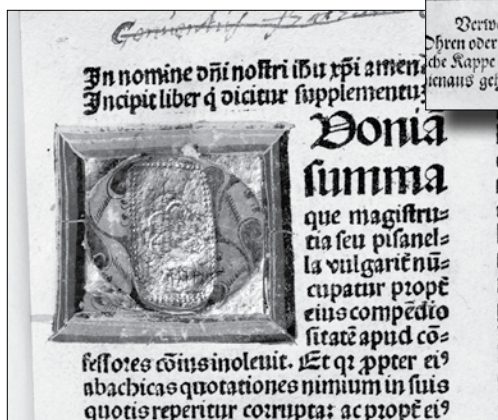 Conuentus
Verw
Ohren oder
che Kappe
ienaus geh
In nomine dn̄i noſtri ih̄u xp̄i amen:
Incipit liber q̇ dicitur ſupplementu:
Q Uoniā
ſumma
que magiſtru=
tia ſeu piſanel=
la vulgarit̄ nū=
cupatur propt̄
eius compēdio
ſitatē apud cō=
feſſores cōius inoleuit. Et qꝛ ꝓpter eiꝰ
abachicas quotationes nimium in ſuis
quotis reperitur corrupta: ac propt̄ eiꝰ